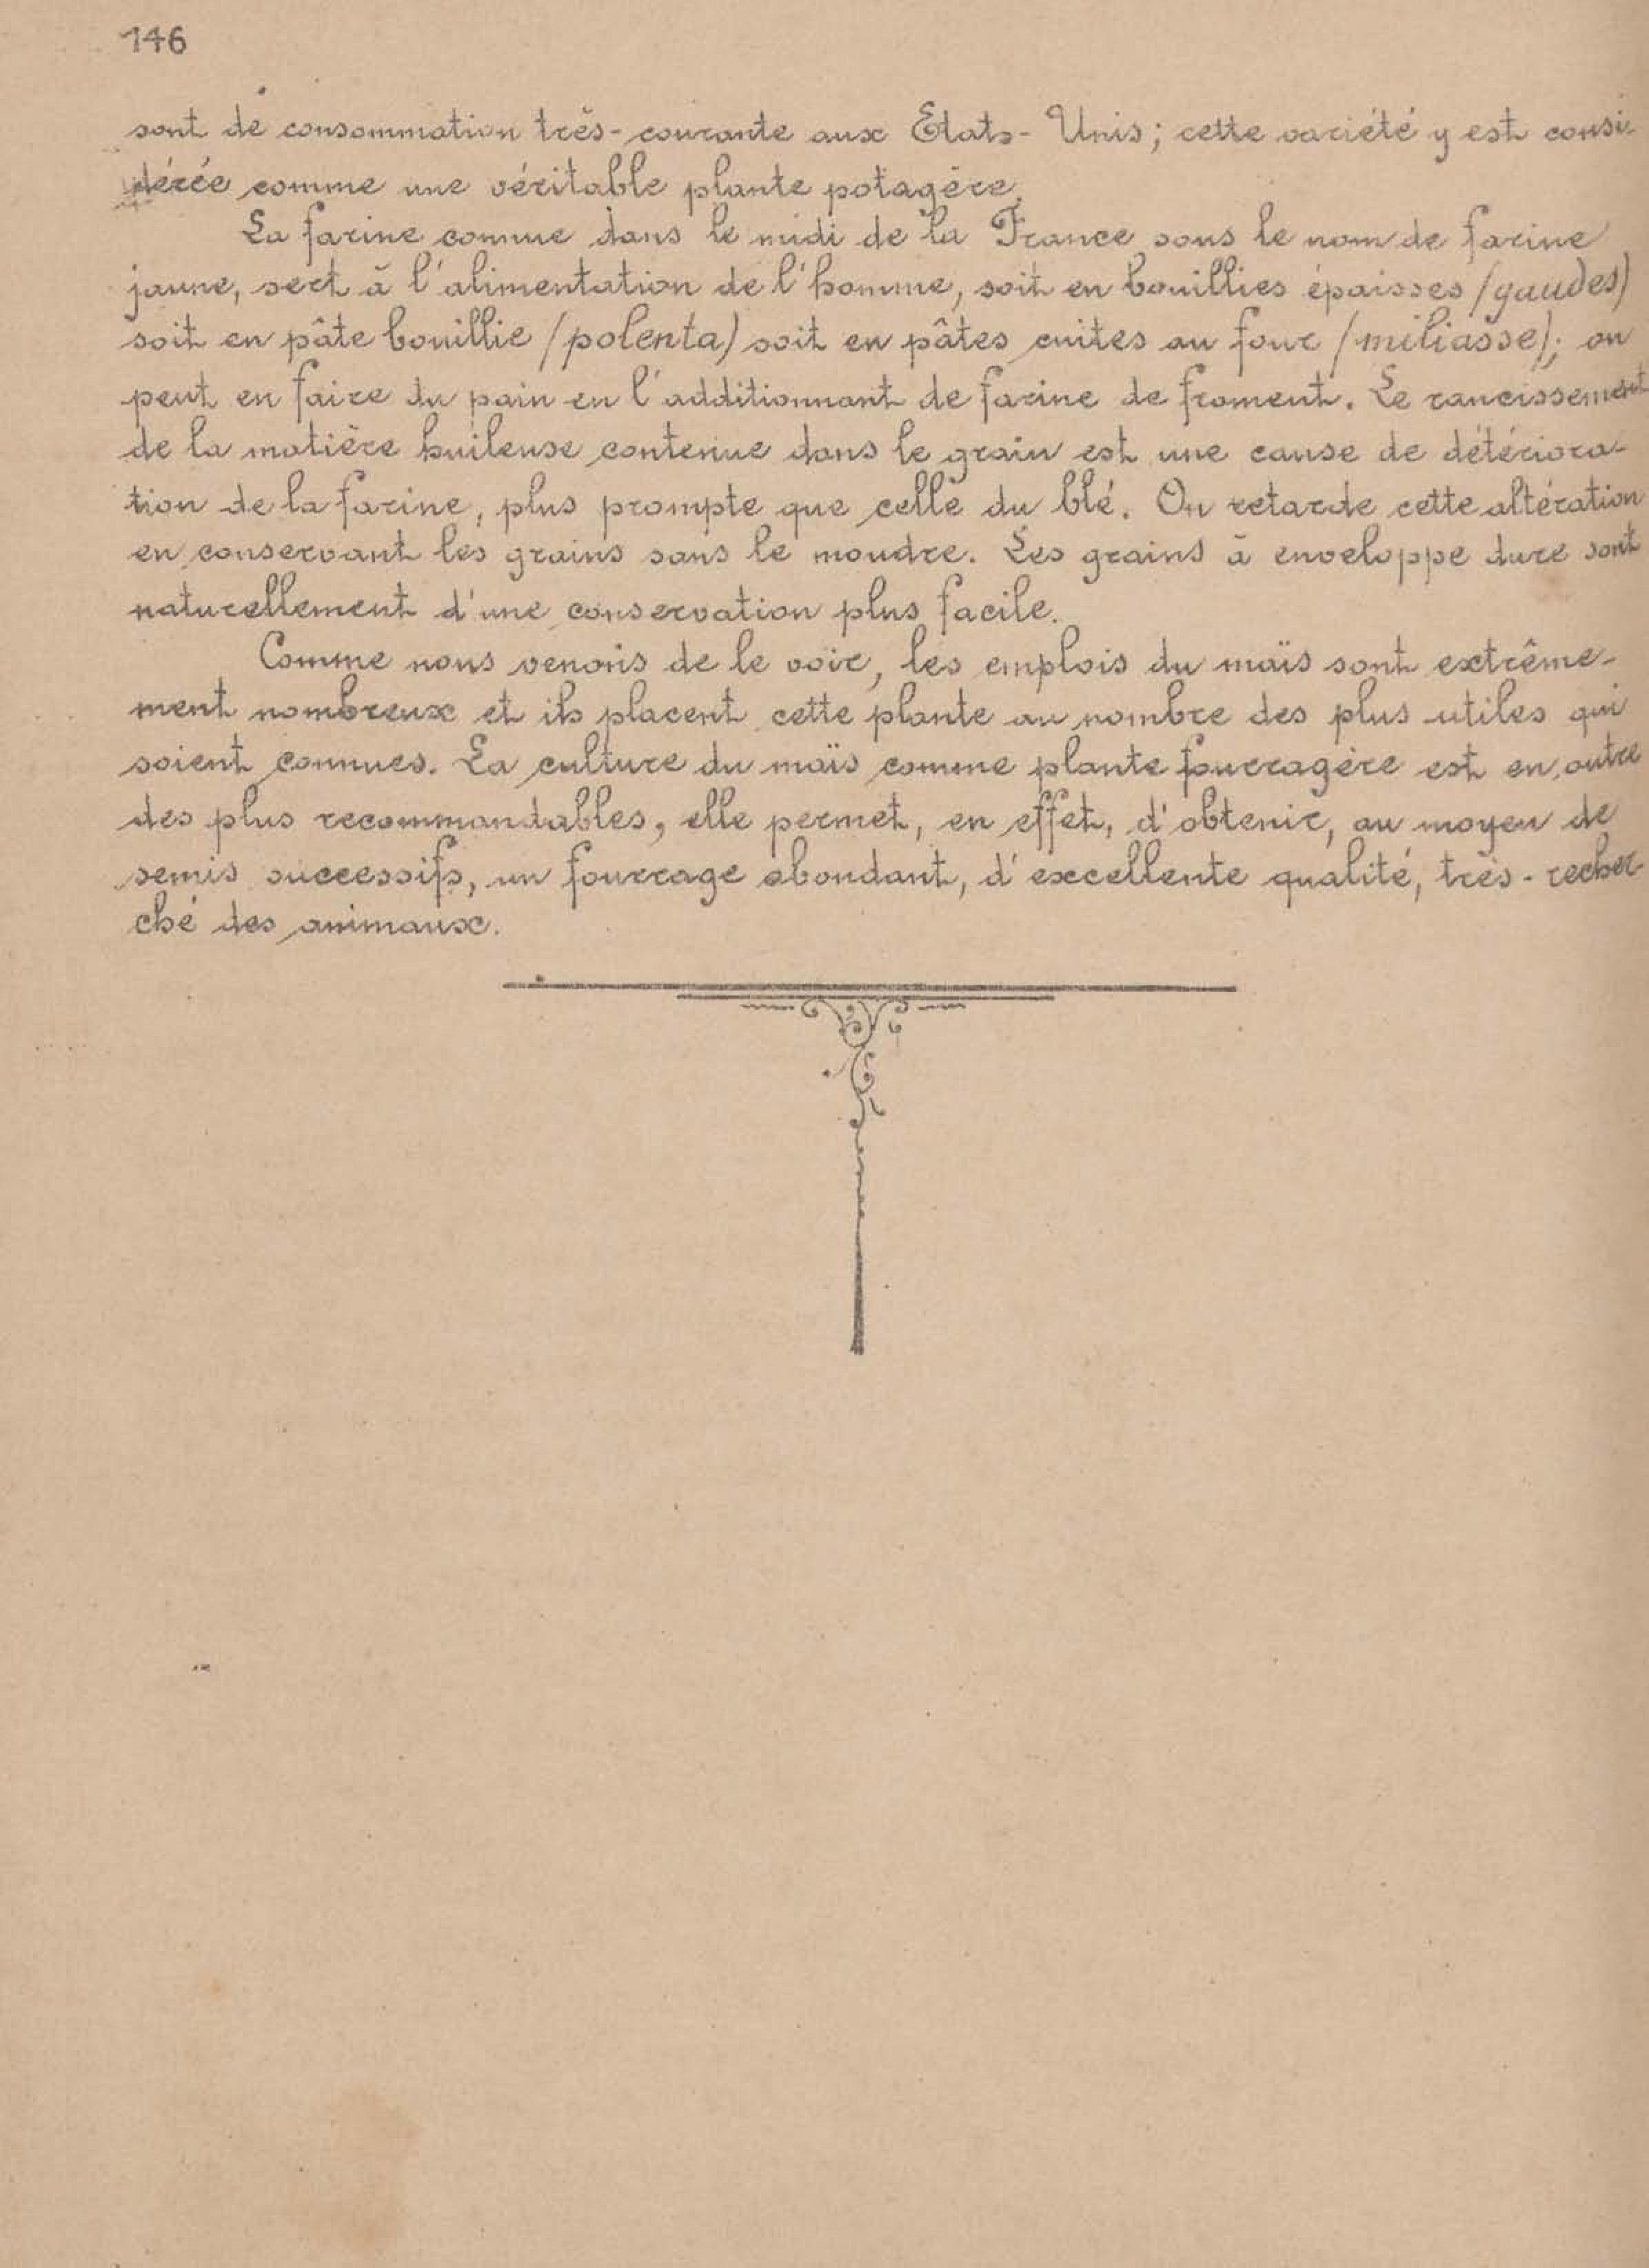 146
sont de consommation très-courante aux Etats-Unis; cette variété y est consi-
dérée comme une véritable plante potagère.
La farine connue dans le midi de la France sous le nom de farine
jaune, sert à l'alimentation de l'homme, soit en bouillies épaisses (gaudes)
soit en pâte bouillie (polenta) soit en pâtes cuites au four (miliasse); on
peut en faire du pain en l'additionnant de farine de froment. Le rancissement
de la matière huileuse contenue dans le grain est une cause de détériora-
tion de la farine, plus prompte que celle du blé. On retarde cette altération
en conservant les grains sans le moudre. Les grains à enveloppe dure sont
naturellement d'une conservation plus facile.
Comme nous venons de le voir, les emplois du maïs sont extrême-
ment nombreux et ils placent cette plante au nombre des plus utiles qui
soient connues. La culture du maïs comme plante fourragère est en outre
des plus recommandables, elle permet, en effet, d'obtenir, au moyen de
semis successifs, un fourrage abondant, d'excellente qualité, très-recher
ché des animaux.